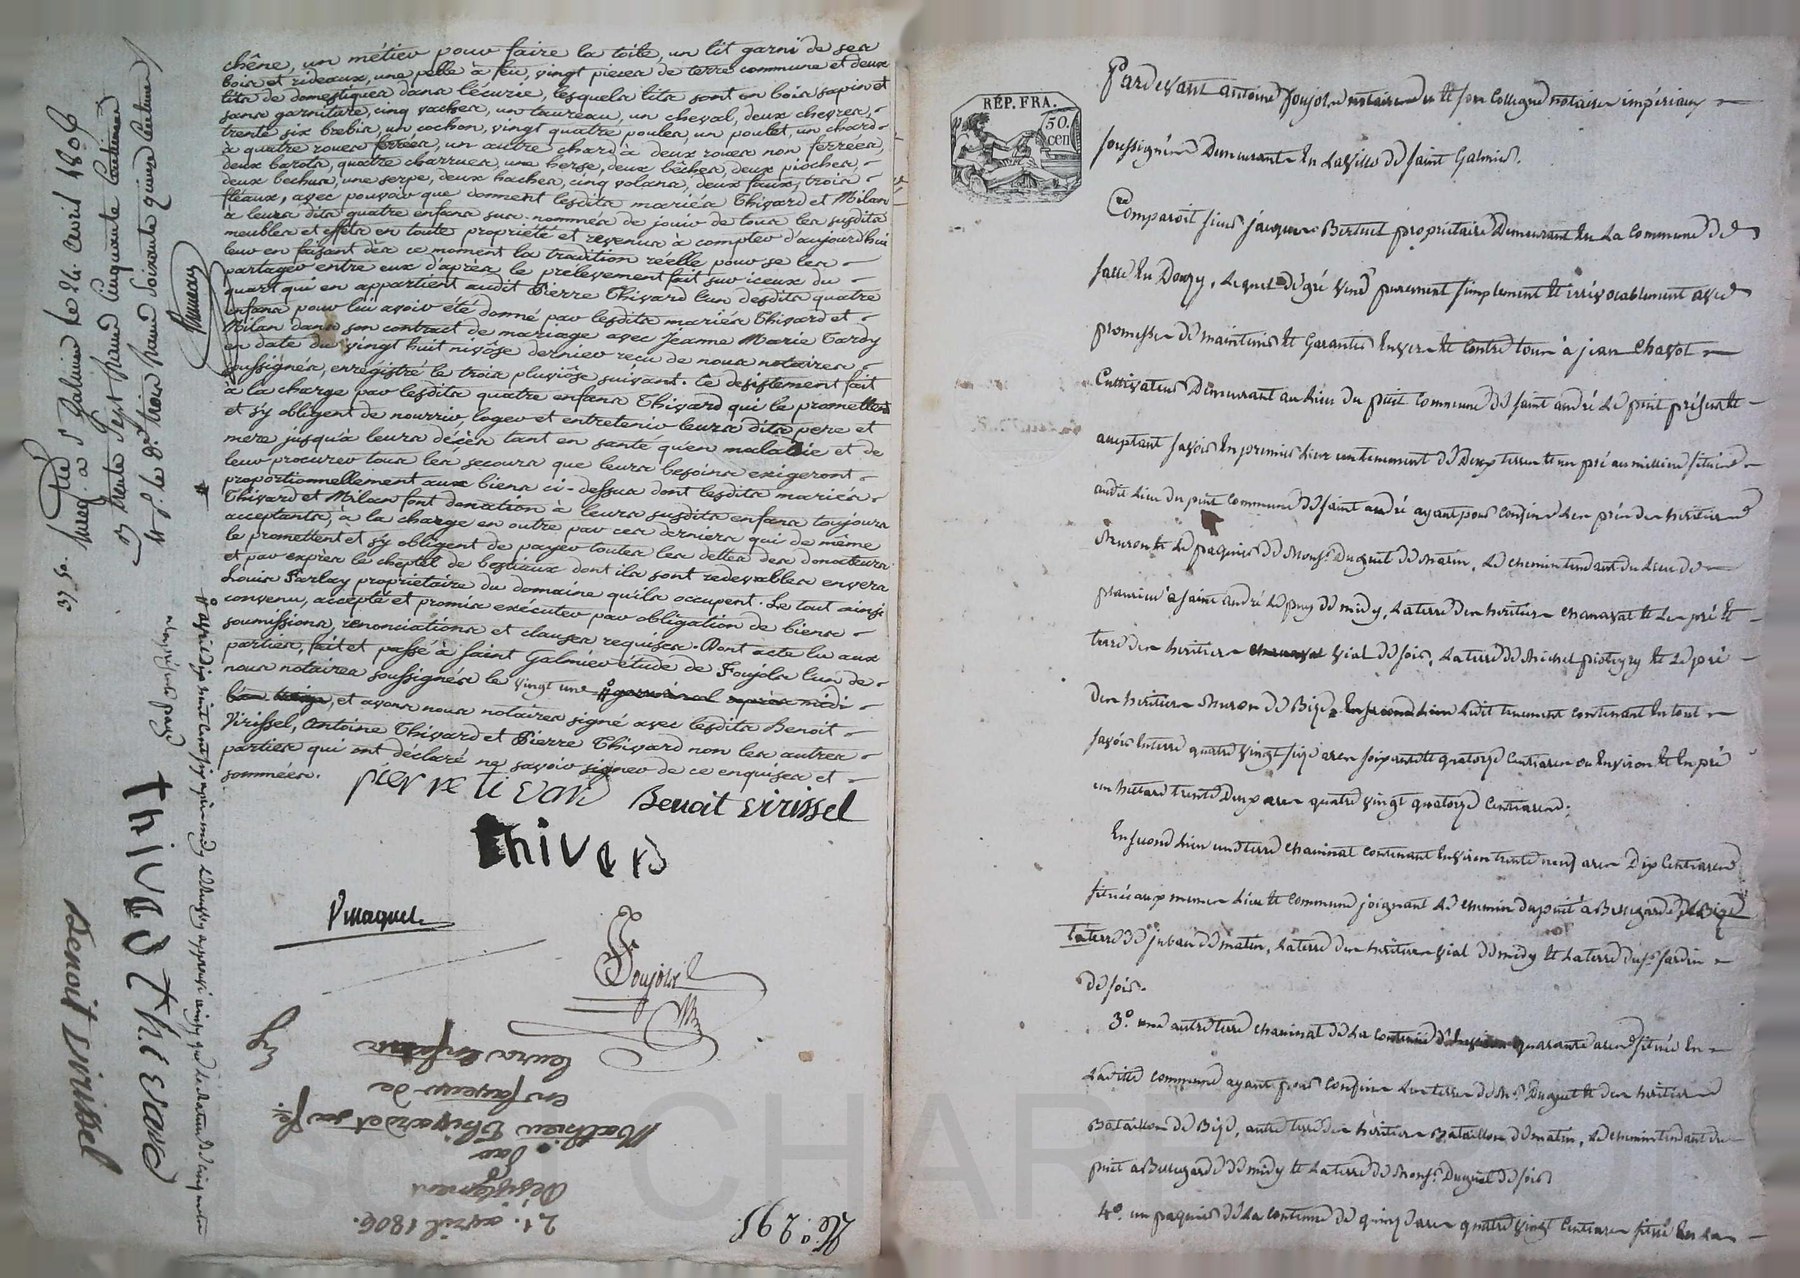 chêne, un métier pour faire la toile, un lit garni de ses
bois et rideaux, une pelle à feu, vingt pieces de terre commune et deux
lits de domestiques dans l'écurie, lesquels lits sont en bois sapin et
sans garniture, cinq vaches, un taureau, un cheval, deux chevres,
trente six brebis, un cochon, vingt quatre poules, un poulet, un chard
à quatre roues ferrées, un autre chard à deux roues non ferrées,
deux barots, quatre charrues, une herse, deux bêches, deux pioches,
deux bechus, une serpe, deux haches, cinq volans, deux faux, trois
fléaux, avec pouvoir que donnent lesdits mariés Thivard et Milan
à leurs dits quatre enfans sus-nommés de jouir de tous les susdits
meubles et effets en toute propriété et revenus à compter d'aujourd'hui
leur en faisant dès ce moment la tradition réelle pour se les
partager entre eux d'après le prélevement fait sur iceux du
quart qui en appartient audit Pierre Thivard l'un desdits quatre
enfans pour lui avoir été donné par lesdits mariés Thivard et
Milan dans son contrat de mariage avec Jeanne Marie Tardy
en date du vingt huit nivôse dernier reçu de nous notaires
soussignés, enregistré le trois pluviôse suivant. Ce desistement fait
à la charge par lesdits quatre enfans Thivard qui le promettent
et s'y obligent de nourrir, loger et entretenir leurs dits pere et
mere jusqu'à leurs décès tant en santé qu'en maladie et de
leur procurer tous les secours que leurs besoins exigeront
proportionnellement aux biens ci-dessus dont lesdits mariés
Thivard et Milan font donation à leurs susdits enfans toujours
acceptants, à la charge en outre par ces derniers qui de même
le promettent et s'y obligent de payer toutes les dettes des donateurs
et par exprès le cheptel de bestiaux dont ils sont redevables envers
Louis Parlay propriétaire du domaine qu'ils occupent. Le tout ainsi
convenu, accepté et promis exécuter par obligation de biens
soumissions, renonciations et clauses requises. Dont acte lu aux
parties, fait et passé à Saint Galmier étude de Foujols l'un de
nous notaires soussignés le vingt un
et avons nous notaires signé avec lesdits Benoit
Virissel, Antoine Thivard et Pierre Thivard non les autres
parties qui ont déclaré ne savoir signer de ce enquises et
sommées.
pierre tivard Benoit virissel
thiverd
Foujols
No. 295.
21. avril 1806.
Désistement
par
Mathieu Thivard et sa fe.
en faveur de
leurs enfans
thivard
Benoit virissel
RÉP. FRA.
50.
cen
Pardevant antoine foujols notaire et son collegue notaires impériaux
soussignés Demeurants en La ville de saint Galmier.
Comparoit sieur jacques Bertuel propriétaire Demeurant en La Commune de
salle en Donzy, Lequel de gré vend purement simplement et irrévocablement avec
promesse de maintenir et Garantir envers et contre tous à jean Chavot
Cultivateur Demeurant au Lieu du puit Commune de saint andré Le puit présent et
acceptant savoir En premier Lieu un tenement de Deux terres et un pré au millieu situé
audit Lieu du puit Commune de saint andré ayant pour confins Les prés des héritiers
Muron et Le paquier de Mons. Duguet de matin, Le chemin tendant du Lieu de
à saint andré Le puy de midy, La terre des héritiers chanavat et Les pré et
terre des héritiers vial de soir, La terre de Michel et Le pré
Des héritiers Muron de Bize Ledit tenement contenant En tout
savoir En terre quatre vingt seize ares soixante et quatorze Centiares ou Environ et En pré
un hectard trente Deux ares quatre vingt quatorze Centiares;
En second Lieu une terre chaninat contenant Environ trente neuf ares Dix Centiares
située aux memes Lieu et Commune joignant Le chemin du puit à Bellegarde de Bize
La terre de jubau de matin, La terre des héritiers vial de midy et La terre du sr. jardin
de soir.
3°. une autre terre chaninat de La Contenue de quarante ares située En
Ladite commune ayant pour confins Les terres de Mr. Duguet et des héritiers
Bataillon de Bize, autre terre des héritiers Bataillon de matin, Le chemin tendant du
puit à Bellegarde de midy et La terre de Mons. Duguet de soir
4°. un paquier de La Contenue de quinze ares quatre vingt Centiares situé En La